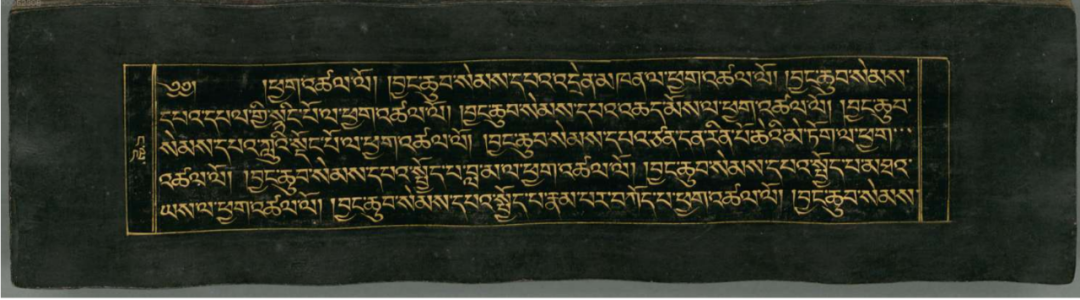 ༄༅། །ཕྱག་འཚལ་ལོ། །བྱང་ཆུབ་སེམས་དཔའ་འདྲེན་མཁན་ལ་ཕྱག་འཚལ་ལོ། །བྱང་ཆུབ་སེམས་
དཔའ་དཔལ་གྱི་སྙིང་པོ་ལ་ཕྱག་འཚལ་ལོ། །བྱང་ཆུབ་སེམས་དཔའ་འཆད་མོས་ལ་ཕྱག་འཚལ་ལོ། །བྱང་ཆུབ་
སེམས་དཔའ་ཀླུའི་སྙིང་པོ་ལ་ཕྱག་འཚལ་ལོ། བྱང་ཆུབ་སེམས་དཔའ་ཙན་དན་དྲི་མེད་ ཏོག་ལ་ཕྱག་
འཚལ་ལོ། །བྱང་ཆུབ་སེམས་དཔའ་སྤྱོད་པ་བླ་མ་ལ་ཕྱག་འཚལ་ལོ། །བྱང་ཆུབ་སེམས་དཔའ་སྤྱོད་པ་མཐའ་
ཡས་ལ་ཕྱག་འཚལ་ལོ། །བྱང་ཆུབ་སེམས་དཔའ་སྤྱོད་པ་རྣམ་པར་བཀོད་པ་ཕྱག་འཚལ་ལོ། །བྱང་ཆུབ་སེམས་